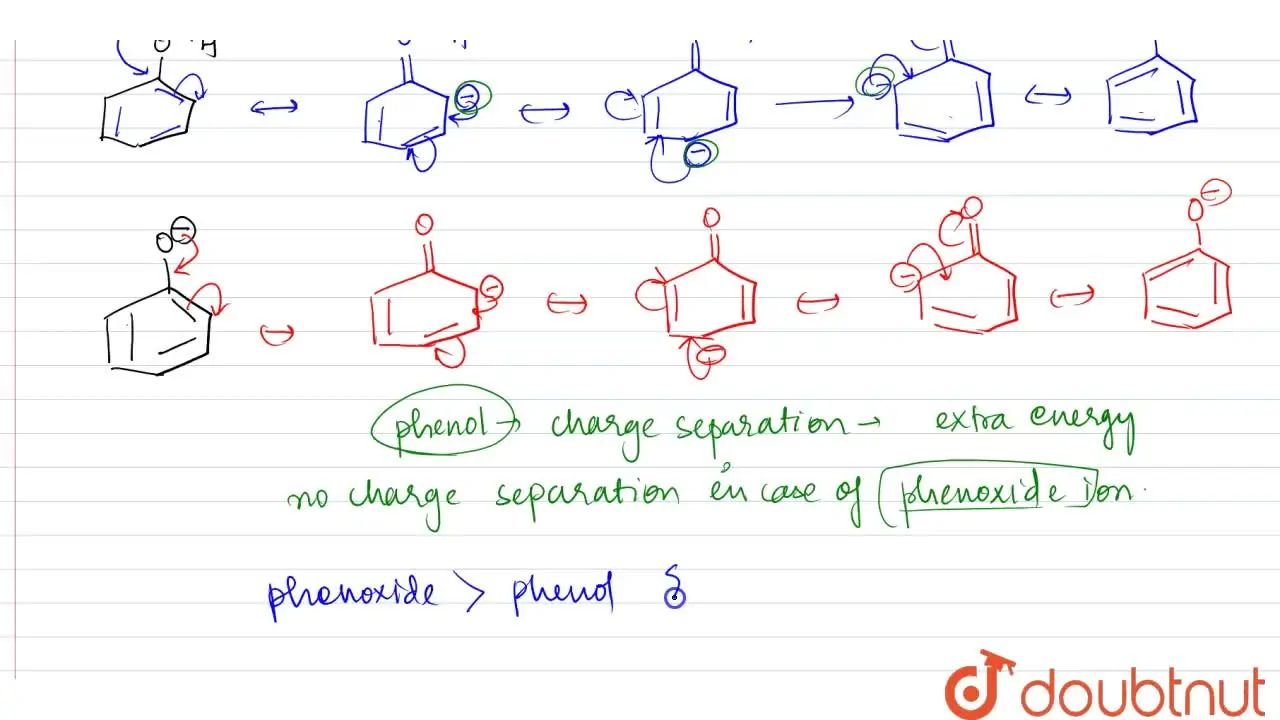 O H
⊖ ⊖ ⊖
O⊖ O O O O⊖
⊖ ⊖ ⊖
phenol → charge separation → extra energy
no charge separation in case of phenoxide ion.
phenoxide > phenol
doubtnut